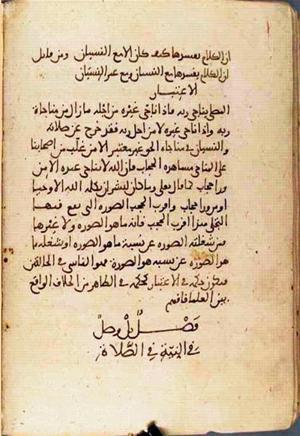 ان الكلام يفسدها كيف كان الا مع النسيان ومن قايل
ان الكلام يفسدها مع النسيان ومع غير النسيان
الاعتبار
المصلي يناجي ربه فاذا ناجى غيره من اجله ما زال من مناجاة
ربه واذا ناجى غيره لا من اجل ربه فقد خرج عن صلاته
والنسيان في مناجاة الحق غير معتبر الا من غلب من اصحابنا
على المناجي مشاهدة الحجاب فان الله لا يناجي عبده الا من
ورا حجاب كما قال تعلى وما كان لبشر ان يكلمه الله الا وحيا
او من ورا حجاب واقرب الحجب الصورة التي يقع فيها
التجلي فهذا اقرب الحجب فانه ما هو الصورة ولا غيرها
فمن شغلته الصورة عن نسبة ما هو الصورة او شغله ما
هو الصورة عن نسبة هو الصورة فهو الناسي في الحالتين
فيكون حكمه في الاعتبار بحكمه في الظاهر من الخلاف الواقع
بين العلما فافهم
فصل بل وصل
في النية في الصلاة